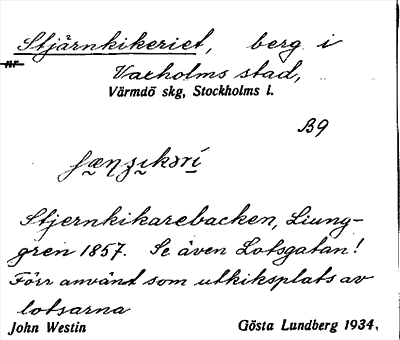 Stjärnkikeriet, berg i
nr
Vaxholms stad,
Värmdö skg, Stockholms l.
B9
Stjernkikarebacken, Ljung-
gren 1857. Se även Lotsgatan!
Förr använt som utkiksplats av
lotsarna
John Westin Gösta Lundberg 1934.